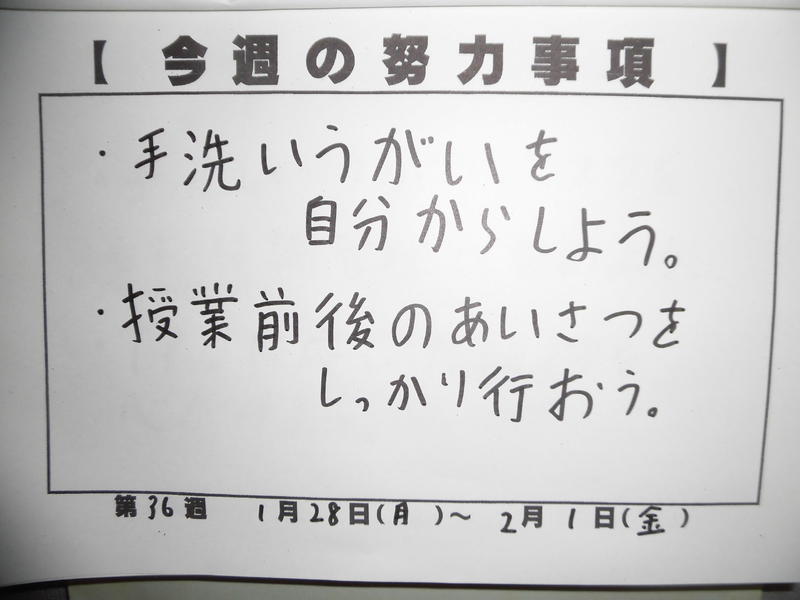 【 今週の努力事項 】
・手洗いうがいを
自分からしよう。
・授業前後のあいさつを
しっかり行おう。
第36週 1月28日(月 )~ 2月1日(金 )